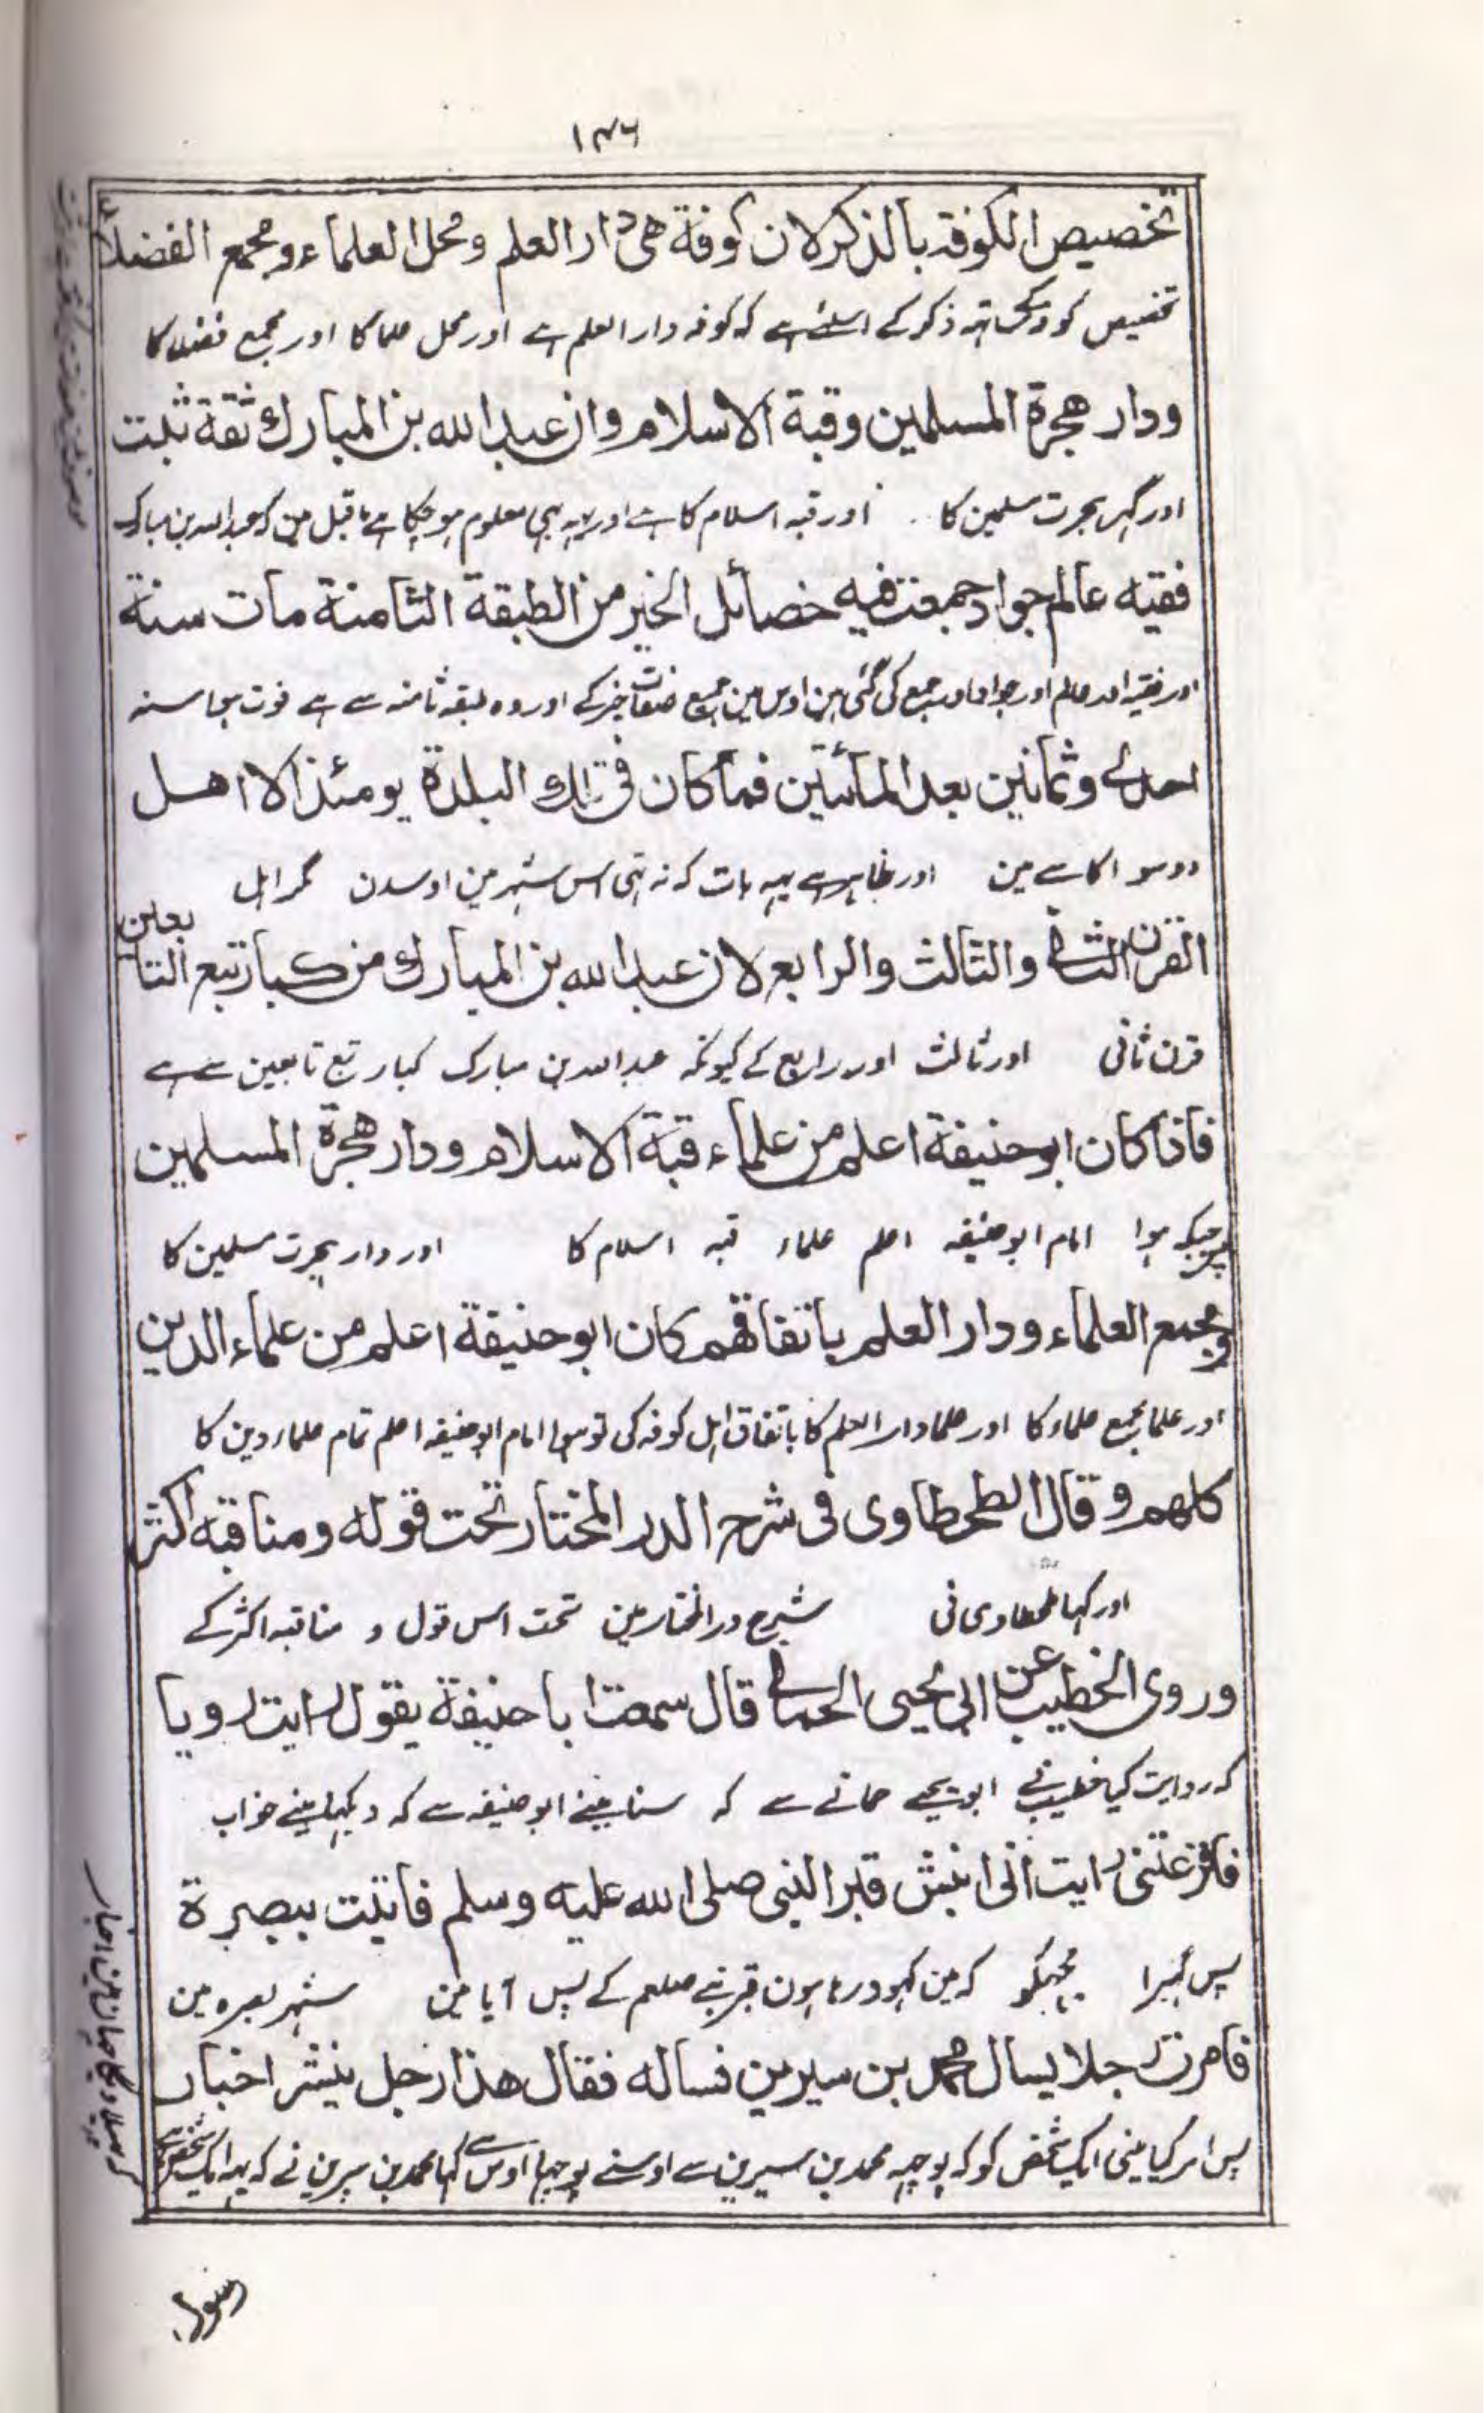 ۱۴۶
تخصيص الكوفة بالذكر لان كوفة هى دار العلم ومحل العلماء ومجمع الفضلاء
تخصیص کوفہ کی ساتہہ ذکر کے اسلئے ہے کہ کوفہ دار العلم ہے اور محل علما کا اور مجمع فضلا کا
ودار هجرة المسلمين وقبة الاسلام وان عبد الله بن المبارك ثقة ثبت
اور گہر ہجرت مسلمین کا اور قبہ اسلام کا ہے اور یہہ بہی معلوم ہو چکا ہے ما قبل مین کہ عبد اللہ بن مبارک
فقيه عالم جواد جمعت فيه خصائل الخير من الطبقة الثامنة مات سنة
اور فقیہ اور عالم اور جواد اور جمع کی گئی ہین اوس مین جمیع صفات خیر کے اور وہ طبقہ ثامنہ سے ہے فوت ہوا سنہ
احدى وثمانين بعد المائتين فما كان فى تلك البلدة يومئذ الا اهل
دو سو اکاسے مین اور ظاہر ہے یہہ بات کہ نہ تہی اس شہر مین اوسدن مگر اہل
القرن الثانى والثالث والرابع لان عبد الله بن المبارك من كبار تبع التابعين
قرن ثانی اور ثالث اور رابع کے کیونکہ عبد اللہ بن مبارک کبار تبع تابعین سے ہے
فاذا كان ابو حنيفة اعلم من علماء قبة الاسلام ودار هجرة المسلمين
پس جبکہ ہوا امام ابو حنیفہ اعلم علماء قبہ اسلام کا اور دار ہجرت مسلمین کا
ومجمع العلماء ودار العلم باتفاقهم كان ابو حنيفة اعلم من علماء الدين
اور علما مجمع علماء کا اور علما دار العلم کا باتفاق اہل کوفہ کی تو ہوا امام ابو حنیفہ اعلم تمام علماء دین کا
كلهم وقال الطحطاوى فى شرح الدر المختار تحت قوله ومناقبه اكثر
اور کہا طحطاوی نی شرح در المختار مین تحت اس قول و مناقبہ اکثر کے
وروى الخطيب عن ابى يحيى الحمانى قال سمعت ابا حنيفة يقول رايت رويا
کہ روایت کیا خطیب نے ابو یحیے حمانے سے کہ سنا مینے ابو حنیفہ سے کہ دیکہا مینے خواب
فافزعتنى رايت انى انبش قبر النبى صلى الله عليه وسلم فاتيت ببصرة
پس گہبرا مجہکو کہ مین کہود رہا ہون قبر نبے صلعم کے پس آیا مین شہر بصرہ مین
فامرت رجلا يسال محمد بن سيرين فساله فقال هذا رجل ينشر اخبار
پس امر کیا مینی ایک شخص کو کہ پوچہہ محمد بن سیرین سے اوسنے پوچہا اوس سے کہا محمد بن سیرین نے کہ یہہ ایک شخص ہے
رسول